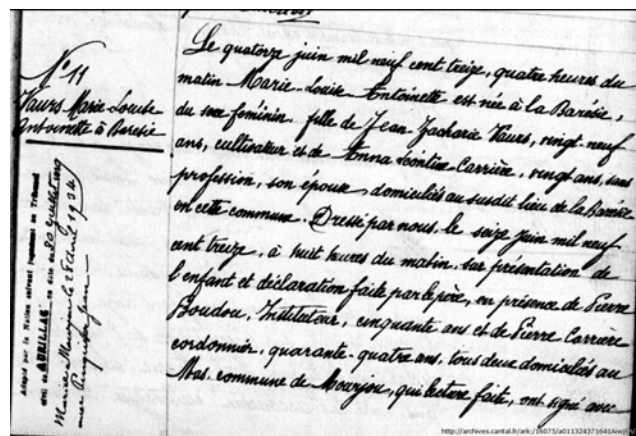 N° 11
Vaurs Marie-Louise
Antoinette à Baresie
Adopté par la Nation suivant jugement du Tribunal
civil de AURILLAC en date du 30 juillet 1919
Mariée à Mourjou le 28 avril 1934
avec
Le quatorze juin mil neuf cent treize, quatre heures du
matin Marie-Louise Antoinette est née à la Barésie,
du sexe féminin, fille de Jean Zacharie Vaurs, vingt-neuf
ans, cultivateur et de Anna Léontine Carrière, vingt ans, sans
profession, son épouse, domiciliés au susdit lieu de la Barésie
en cette commune. Dressé par nous, le seize juin mil neuf
cent treize, à huit heures du matin, sur présentation de
l'enfant et déclaration faite par le père, en présence de Pierre
Boudou, Instituteur, cinquante ans et de Pierre Carrière
cordonnier, quarante-quatre ans, tous deux domiciliés au
Mas, commune de Mourjou, qui, lecture faite, ont signé avec